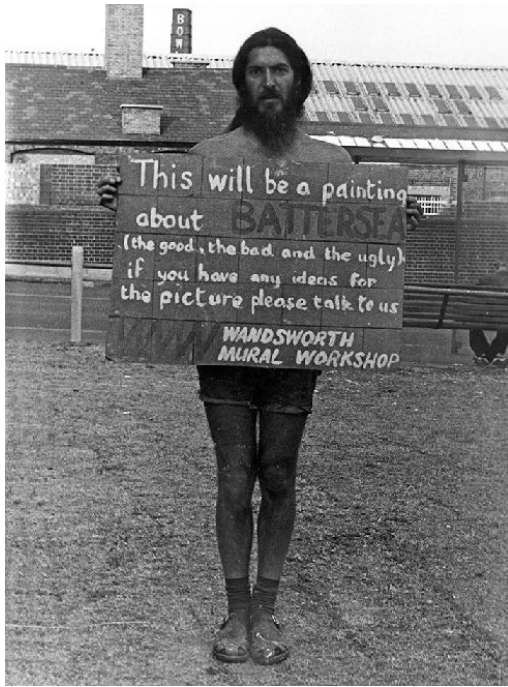 BOW
This will be a painting
about BATTERSEA
(the good, the bad and the ugly)
if you have any ideas for
the picture please talk to us
WANDSWORTH
MURAL WORKSHOP